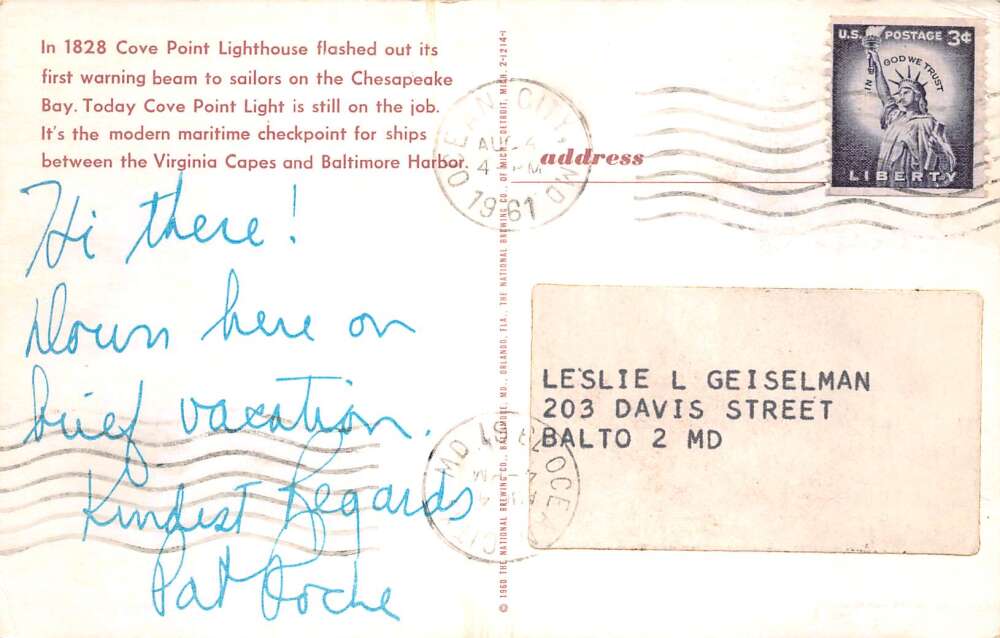 In 1828 Cove Point Lighthouse flashed out its
first warning beam to sailors on the Chesapeake
Bay. Today Cove Point Light is still on the job.
It's the modern maritime checkpoint for ships
between the Virginia Capes and Baltimore Harbor.
Hi there!
Down here on
brief vacation.
Kindest Regards
Pat Roche
© 1960 THE NATIONAL BREWING CO., BALTIMORE, MD., ORLANDO, FLA., THE NATIONAL BREWING CO., OF MICH., DETROIT, MICH. 2-1214-1
OCEAN CITY, MD
AUG 4
4 PM
1961
address
U.S. POSTAGE 3¢
IN GOD WE TRUST
LIBERTY
LESLIE L GEISELMAN
203 DAVIS STREET
BALTO 2 MD